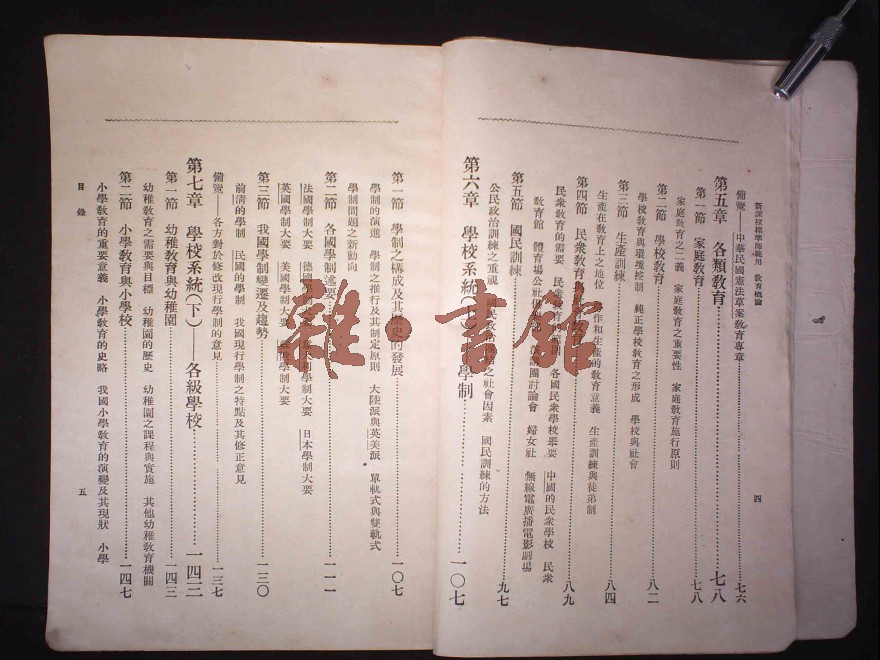 新課程標準師範用　教育概論
四
備覽——中華民國憲法草案教育專章……七六
第五章　各類教育……七八
第一節　家庭教育……七八
家庭教育之二義　家庭教育之重要性　家庭教育施行原則
第二節　學校教育……八二
學校教育與環境控制　純正學校教育之形成　學校與社會
第三節　生產訓練……八四
生產在教育上之地位　作和生產的教育意義　生產訓練與徒弟制
第四節　民衆教育……八九
民衆教育的需要　各國民衆學校舉要　中國的民衆學校　民衆
教育館　體育場公社　討論會　婦女社　無線電廣播電影劇場
第五節　國民訓練……九七
公民政治訓練之重視　之社會因素　國民訓練的方法
第六章　學校系統(上)　學制……一〇七
第一節　學制之構成及其歷史的發展……一〇七
學制的演進　學制之推行及其制定原則　大陸派與英美派　單軌式與雙軌式
學制問題之新動向
第二節　各國學制述要……一一一
法國學制大要　德國學制大要　意大利學制大要　日本學制大要
英國學制大要　美國學制大要　蘇俄學制大要
第三節　我國學制變遷及趨勢……一三〇
前清的學制　民國的學制　我國現行學制之特點及其修正意見
備覽——各方對於修改現行學制的意見……一三七
第七章　學校系統(下)——各級學校……一四三
第一節　幼稚教育與幼稚園……一四三
幼稚教育之需要與目標　幼稚園的歷史　幼稚園之課程與實施　其他幼稚教育機關
第二節　小學教育與小學校……一四七
小學教育的重要意義　小學教育的史略　我國小學教育的演變及其現狀　小學
目錄
五
雜·書館